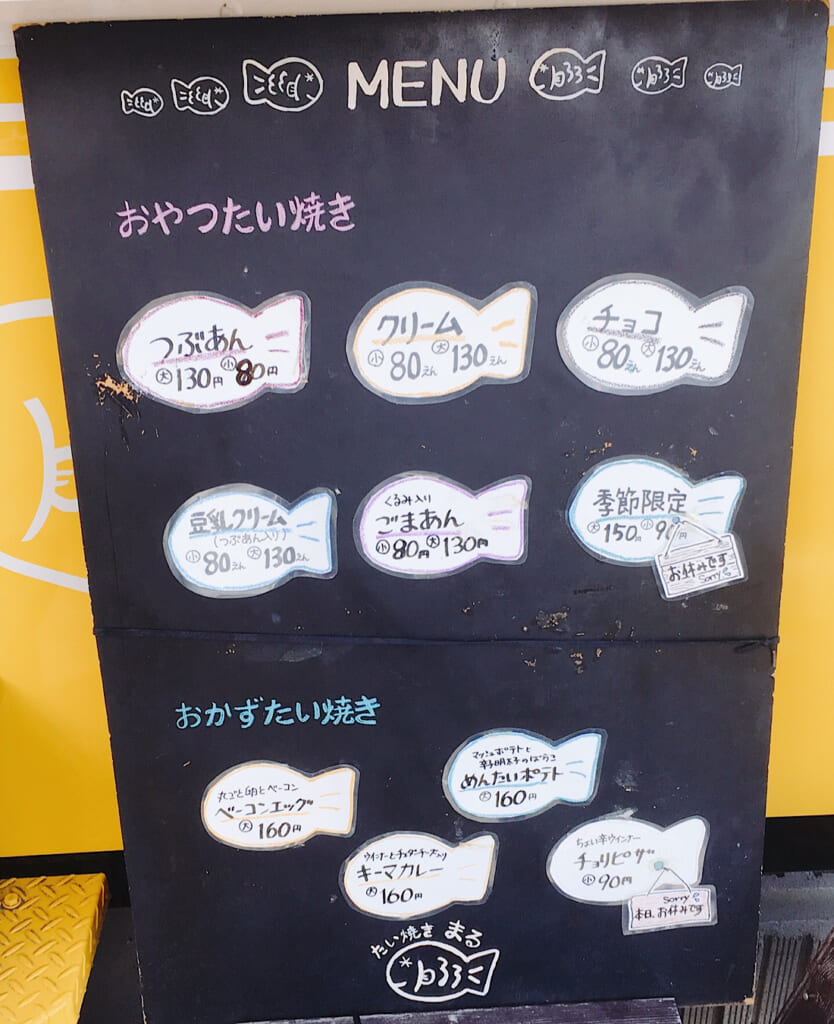 MENU
おやつたい焼き
つぶあん
大130円 小80円
クリーム
小80えん 大130えん
チョコ
小80えん 大130えん
豆乳クリーム
(つぶあん入り)
小80えん 大130えん
くるみ入り
ごまあん
小80円 大130円
季節限定
大150円 小90
お休みです
sorry
おかずたい焼き
丸ごと卵とベーコン
ベーコンエッグ
大160円
マッシュポテトと
辛子明太子のばらこ
めんたいポテト
大160円
ウインナーとチェダーチーズ入り
キーマカレー
大160円
ちょい辛ウインナー
チョリピザ
小90円
sorry
本日、お休みです
たい焼き まる